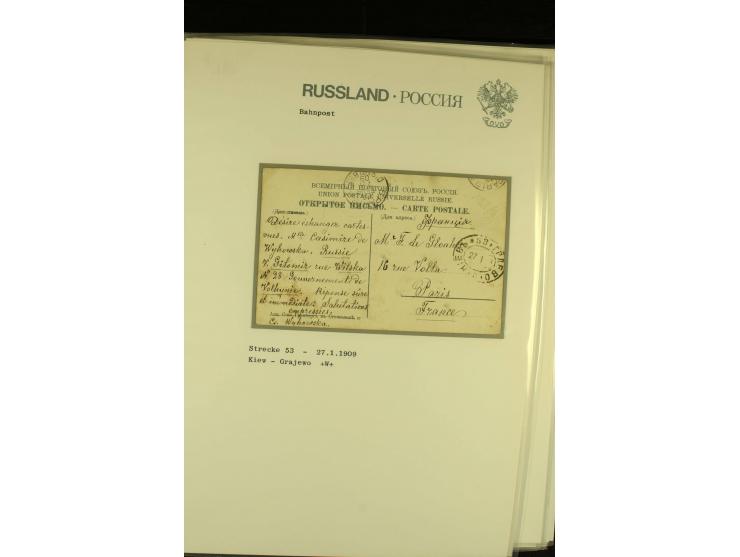 RUSSLAND · РОССИЯ
Bahnpost
ВСЕМІРНЫЙ ПОЧТОВЫЙ СОЮЗЪ. РОССІЯ.
UNION POSTALE UNIVERSELLE RUSSIE.
ОТКРЫТОЕ ПИСЬМО. — CARTE POSTALE.
(Для письма).
(Для адреса).
Франція
Désire échanger cartes
vues. Mlle Casimire de
Wyhowska. Russie
V. Gitomir rue Wilska
N 28 Gouvernement de
Volhynie. Réponse sûre
et immédiate. Salutations
empressées
C. Wyhowska
Mr F. de
16 rue Volta
Paris
France
53
27 1
Strecke 53 - 27.1.1909
Kiew - Grajewo +W+